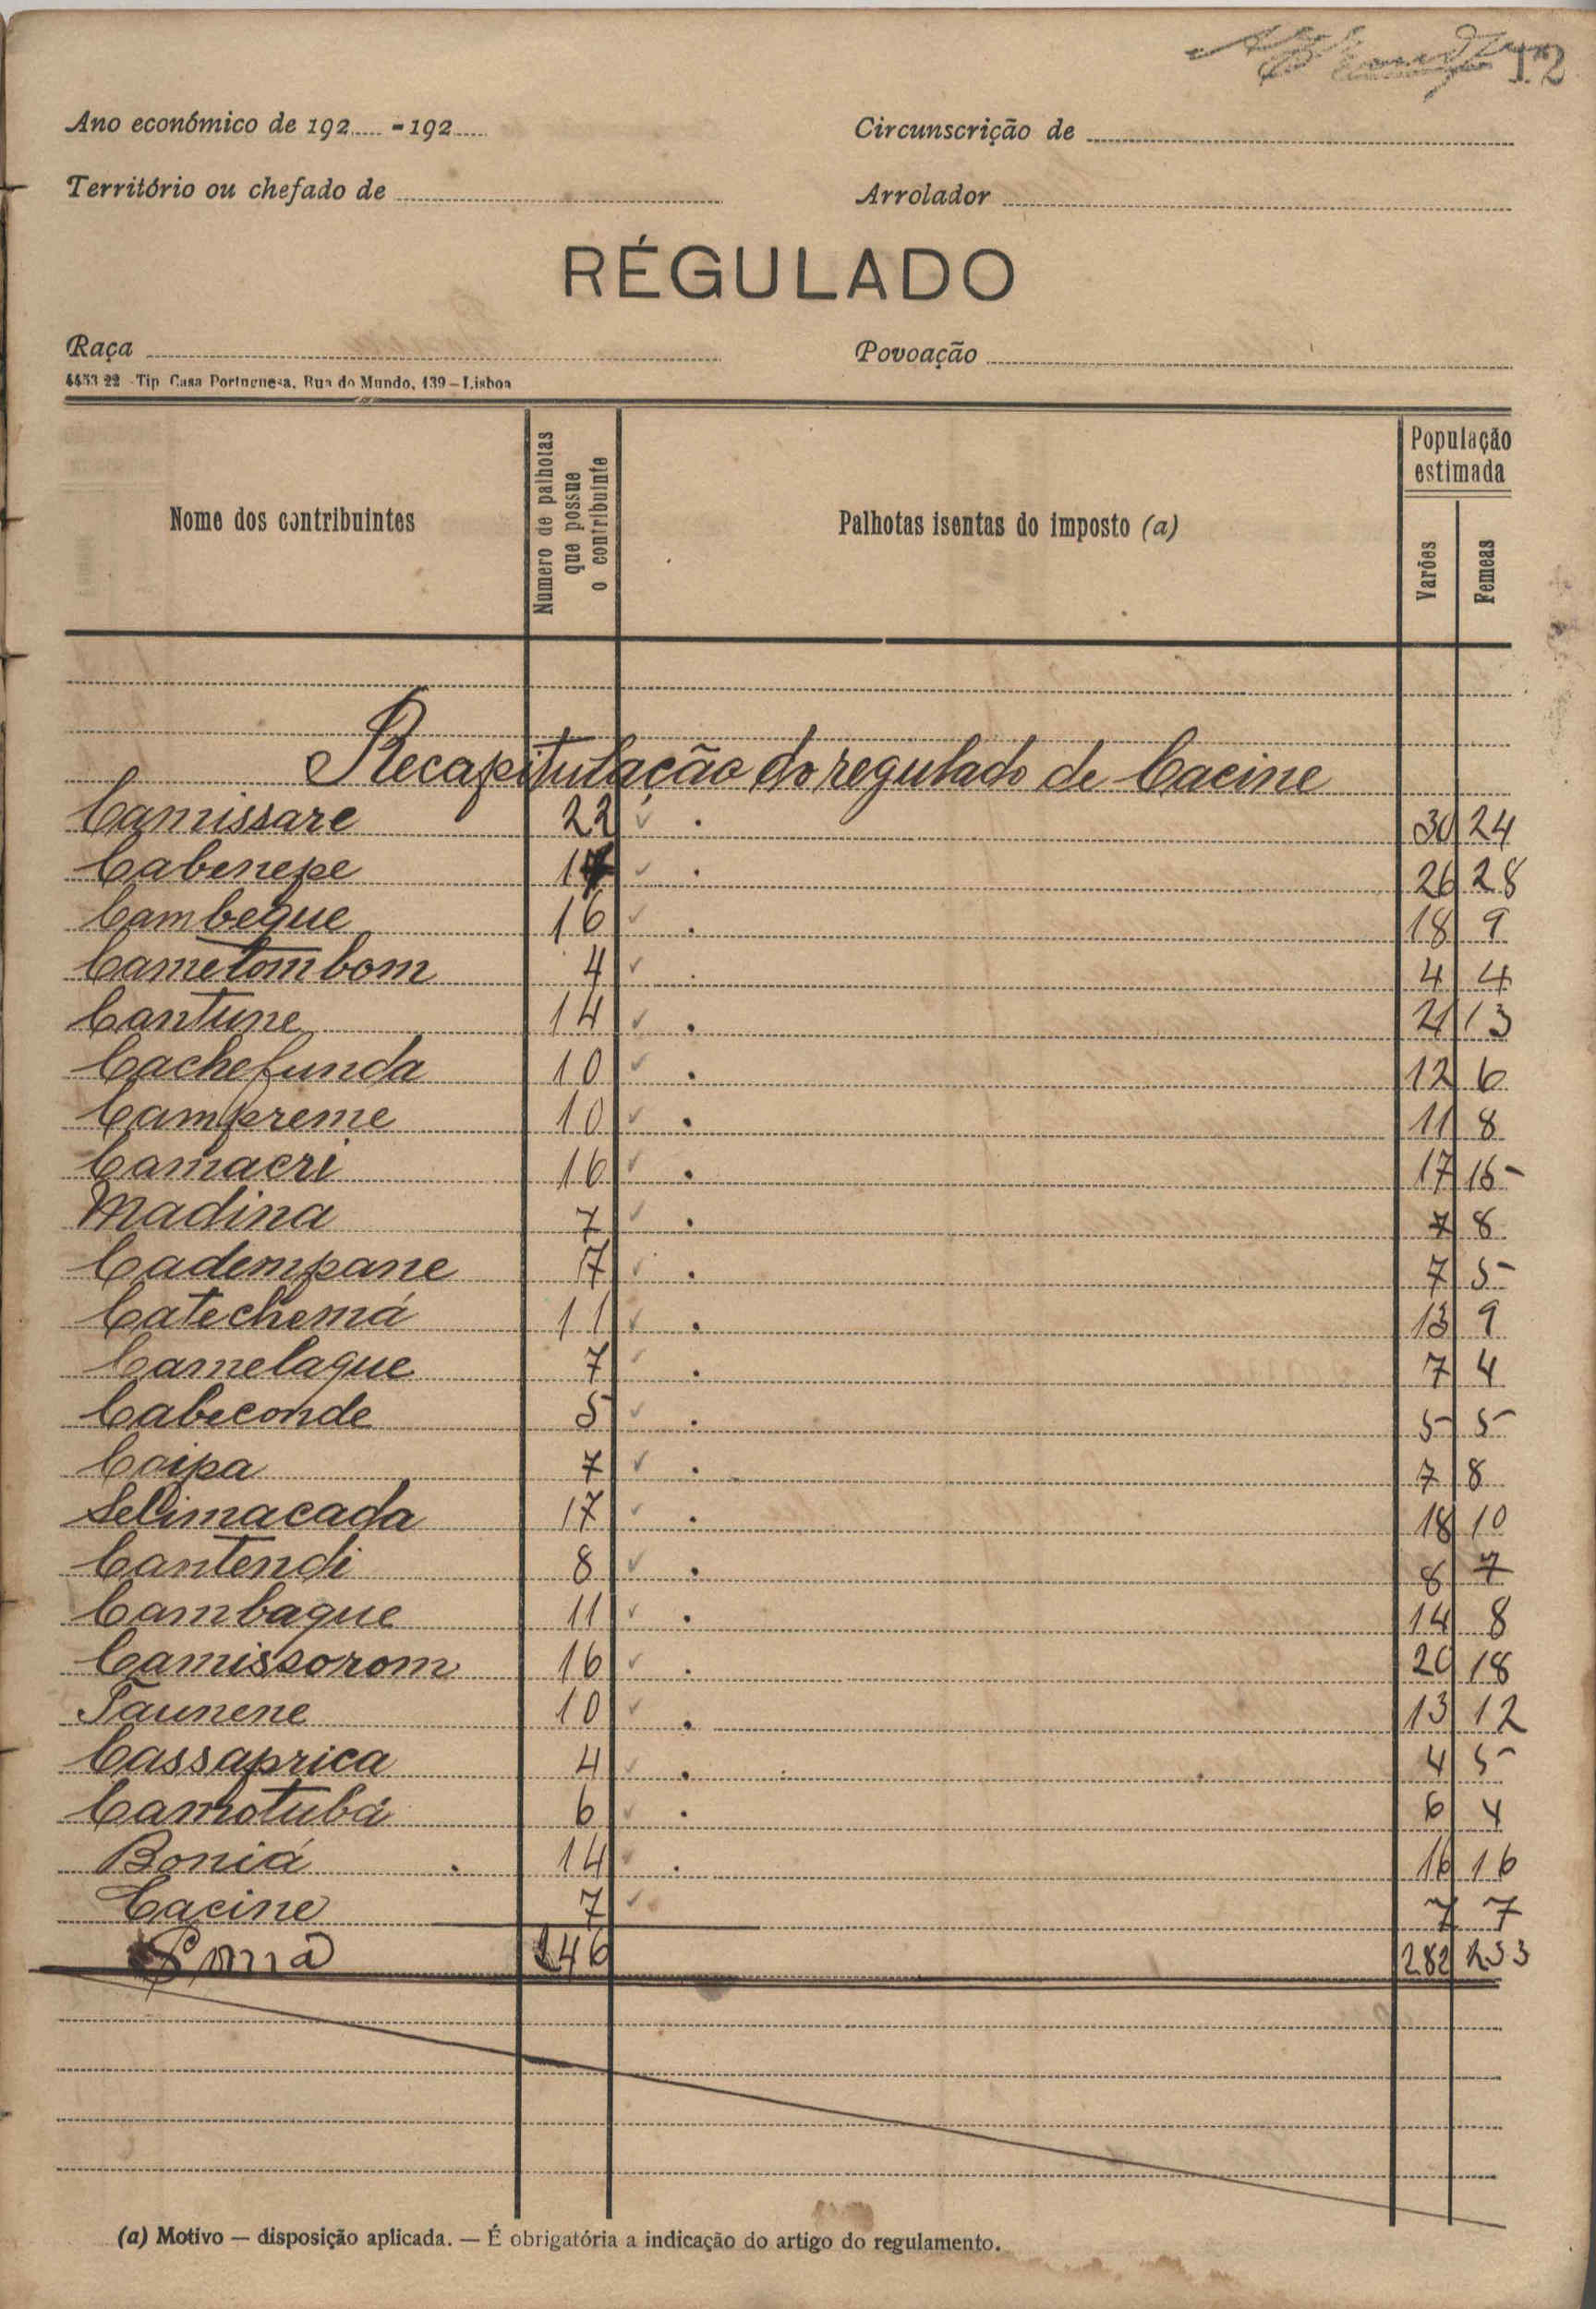 12
Ano económico de 192..... - 192.....
Circunscrição de
Território ou chefado de
Arrolador
RÉGULADO
Raça
Povoação
4453 22 - Tip. Casa Portuguesa, Rua do Mundo, 139 – Lisboa
Nome dos contribuintes
Número de palhotas que possue o contribuinte
Palhotas isentas do imposto (a)
População estimada
Varões
Femeas
Recapitulação do regulado de Cacine
Camissare 22 30 24
Cabenepe 17 26 28
Cambeque 16 18 9
Cametombom 4 4 4
Cantune 14 21 13
Cachefunda 10 12 6
Campreme 10 11 8
Camacri 16 17 15
Madina 7 7 8
Cadempane 7 7 5
Catechemá 11 13 9
Camelaque 7 7 4
Cabeconde 5 5 5
Coipa 7 7 8
Selimacada 17 18 10
Cantendi 8 8 7
Cambaque 11 14 8
Camissorom 16 20 18
Taunene 10 13 12
Cassaprica 4 4 5
Camotubá 6 6 4
Boniá 14 16 16
Cacine 7 7 7
Soma 246 282 233
(a) Motivo — disposição aplicada. — É obrigatória a indicação do artigo do regulamento.